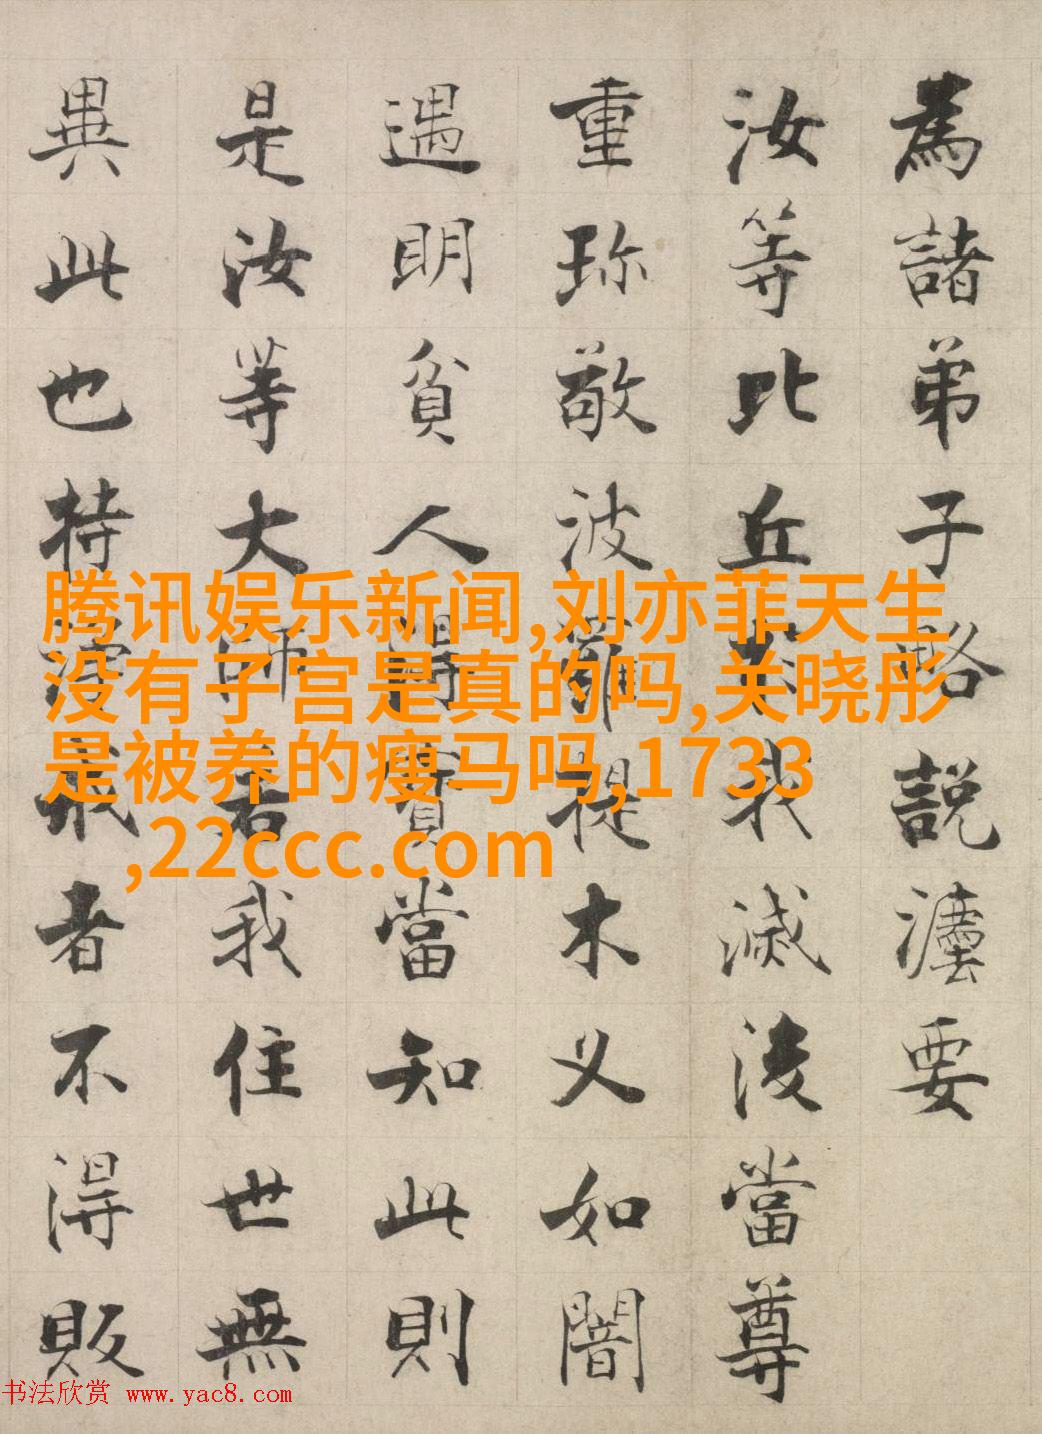 為諸弟子略說灋要
汝等比丘於我滅後當尊
重珎敬波羅提木叉如闇
遇明貧人得寶當知此則
是汝等大師若我住世無
異此也持淨戒者不得販
腾讯娱乐新闻,刘亦菲天生
没有子宫是真的吗,关晓彤
是被养的瘦马吗,1733
,22ccc.com
书法欣赏 www.yac8.com